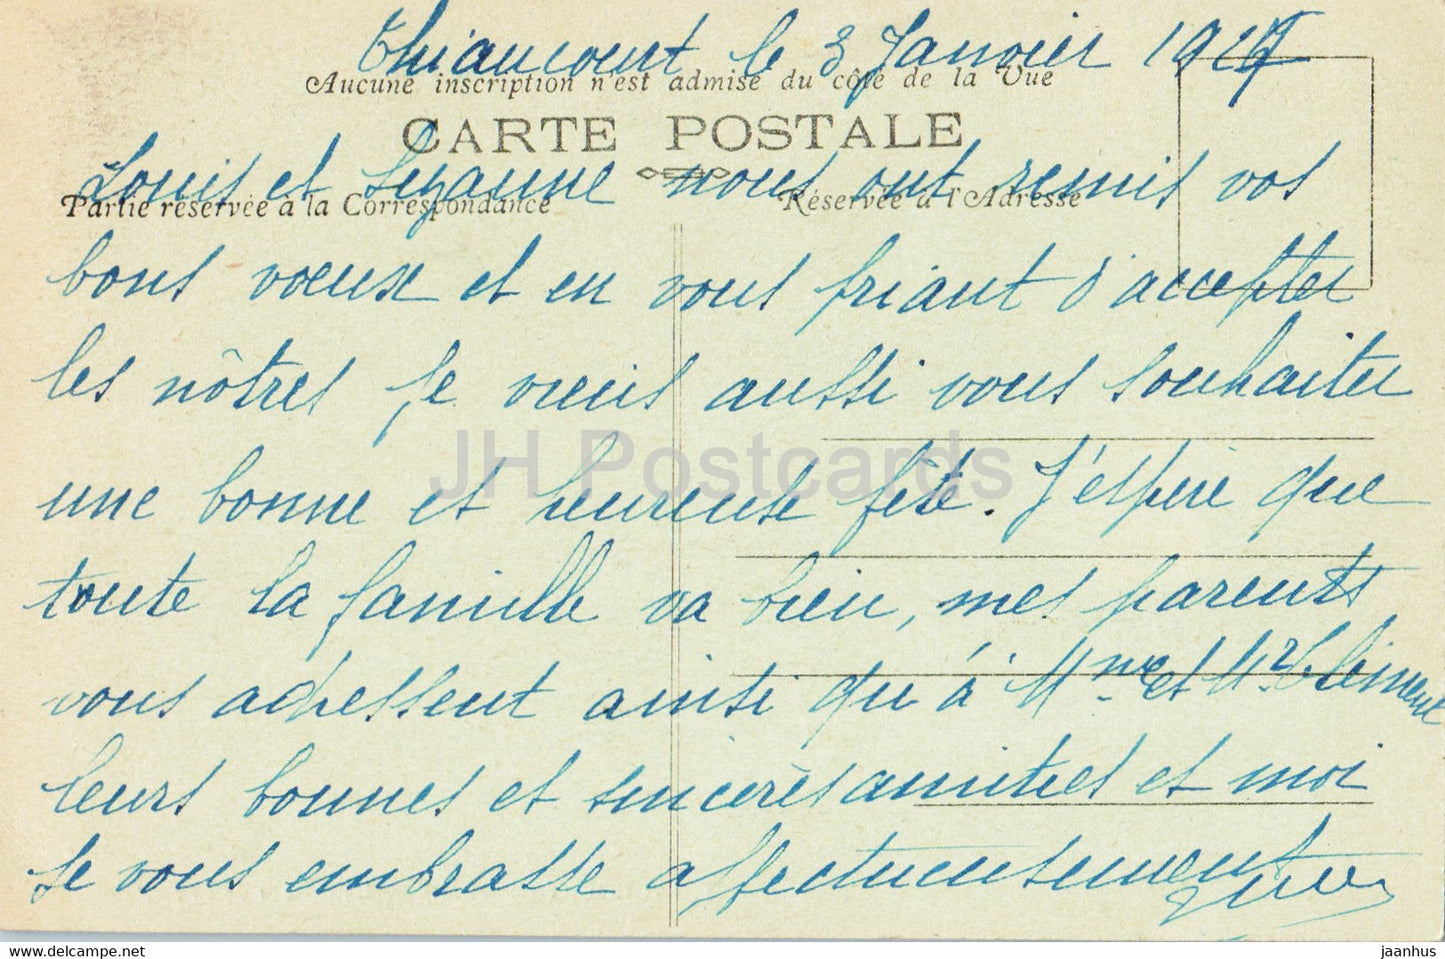 Thiaucourt le 3 Janvier 1927
Aucune inscription n'est admise du côté de la Vue
CARTE POSTALE
Louis et Suzanne nous ont remis vos
Partie réservée à la Correspondance
Réservée à l'Adresse
bons voeux et en vous priant d'accepter
les nôtres je viens aussi vous souhaiter
JH Postcards
une bonne et heureuse fête. J'espère que
toute la famille va bien, mes parents
vous adressent ainsi qu'à Mme et Mr Clément
leurs bonnes et sincères amitiés et moi
je vous embrasse affectueusement
www.delcampe.net
jaanhus